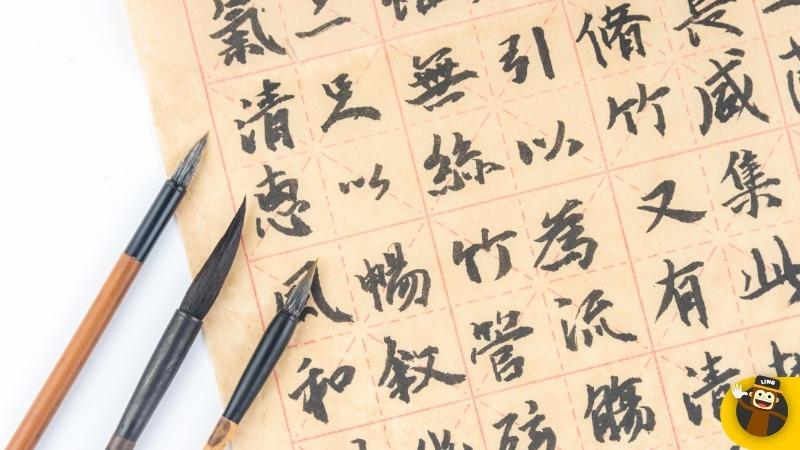 長咸集此
脩竹又有清
引以為流觴
無絲竹管弦
足以暢叙
氣清惠風和
LING